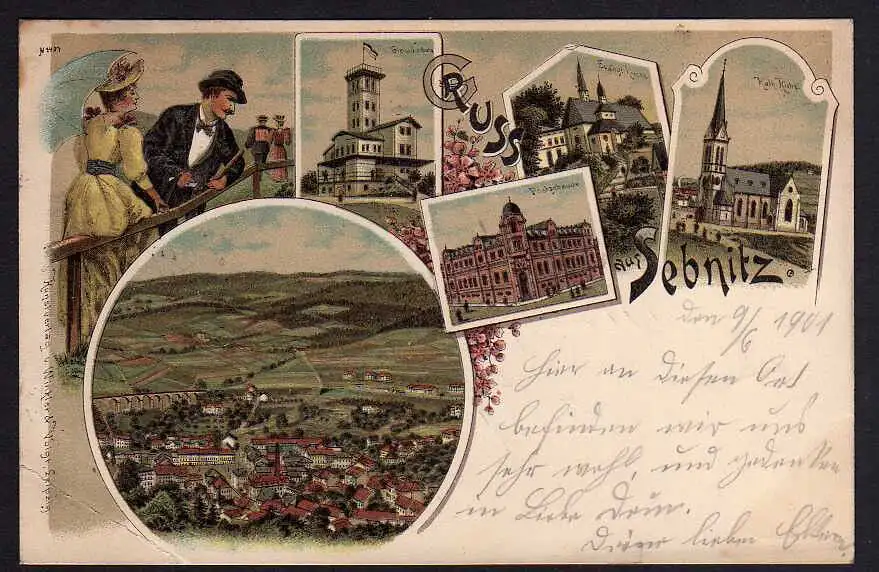 Gruss aus Sebnitz
Evang. Kirche
Kath. Kirche
den 9/6 1901
Hier an diesen Ort
befinden wir uns
sehr wohl, und gedenken
in Liebe Dein.
Deiner lieben Eltern.